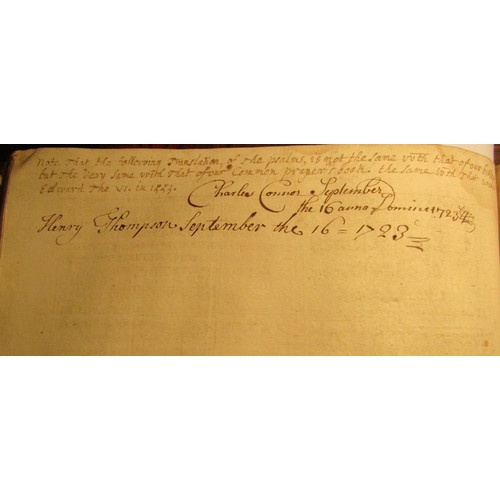 Note, That the following Translation, of the psalms, is not the same with that of our
but the very same with that of our Common prayer book. the same with that
Edward the VI. in
Charles Connor September
the 16 anno Domini 1723
Henry Thompson September the 16 = 1723